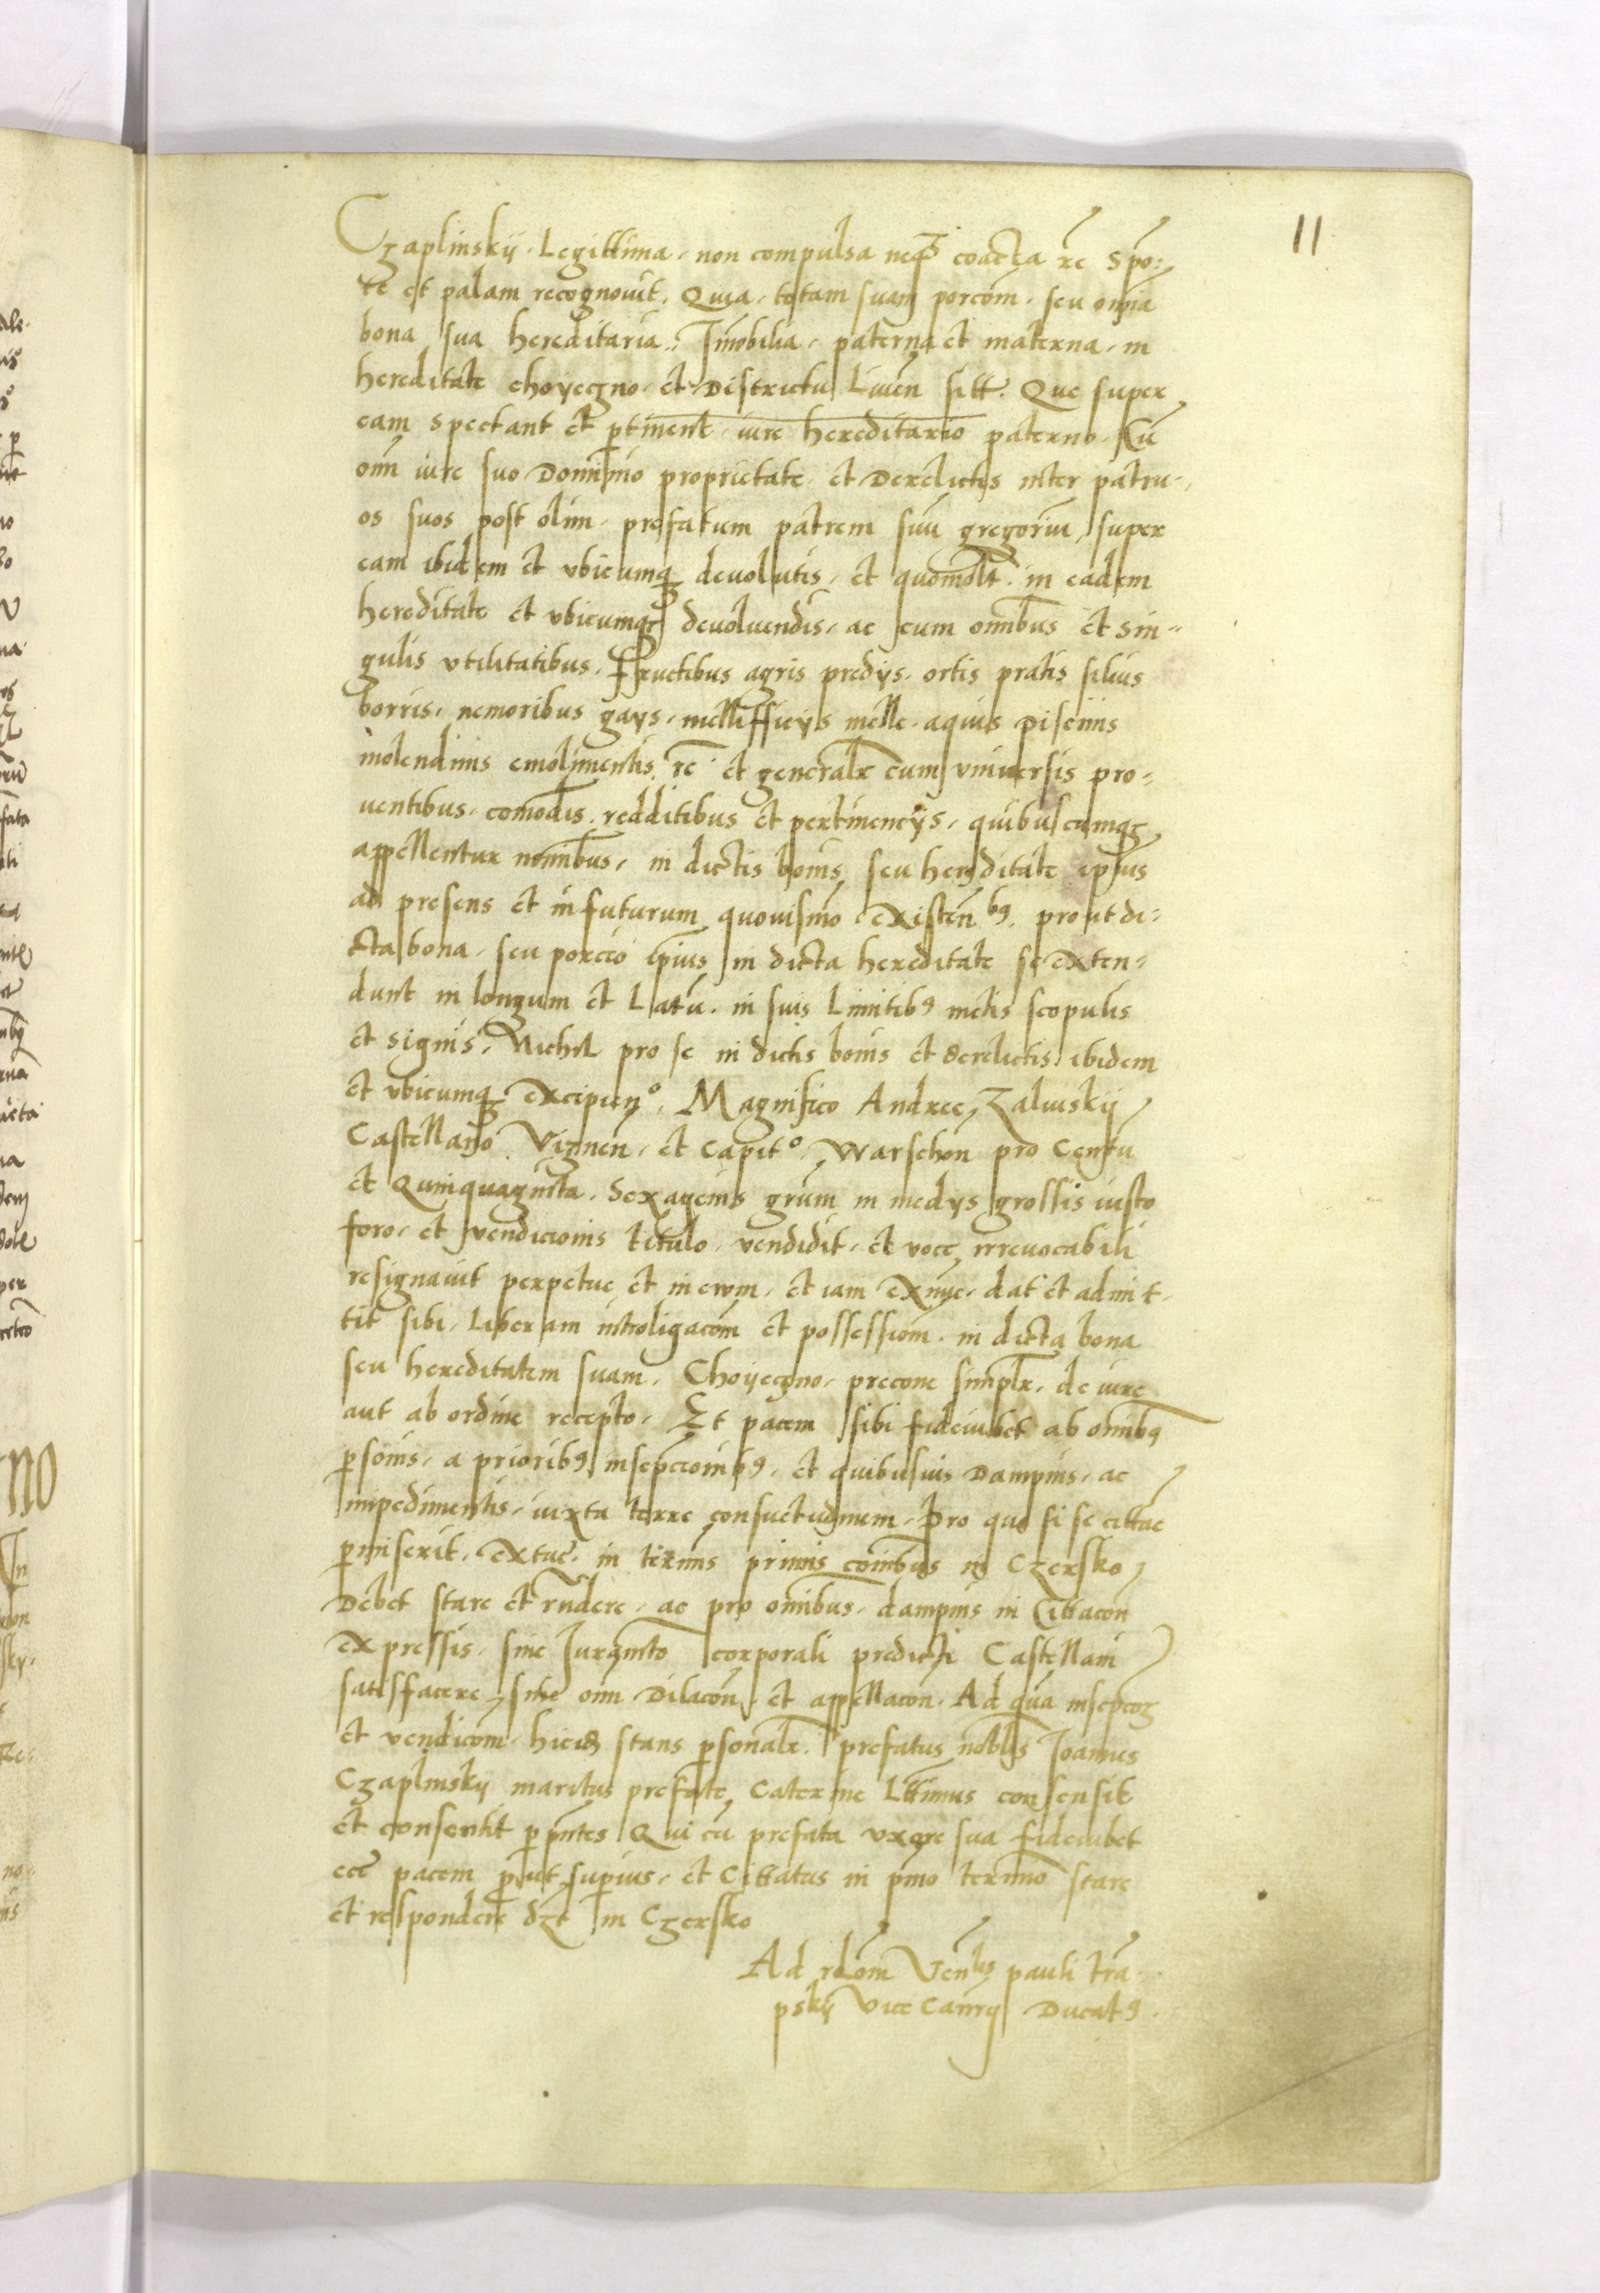 11
Czaplinskij. Legittima. non compulsa neqȝ coacta rc̄ Spo:
te et palam recognovit. Quia. totam suam porcōm. seu om̄ia
bona sua hereditaria. Im̄obilia. paterna et materna. in
hereditate choyeczno. et Districtu Liuēn sitt. Que super
eam spectant et p̱tinent. iure hereditario paterno. Cū
om̄i iure suo Dominio proprietate et Derelictis inter patru-
os suos post olim. prefatum patrem suū gregoriū super
eam ibidem et vbicumqȝ deuolutis. et quomolt. in eadem
hereditate et vbicumqȝ deuoluendis. ac cum omnibus et sin-
gulis vtilitatibus. fructibus agris predijs. ortis pratis siluis
borris. nemoribus gays. mellifficijs melle. aquis piscinis
molendinis emolimentis. rc̄ et generalr̄ cum vniuersis pro-
uentibus. comodis. redditibus et pertinencijs. quibuscumqȝ
appellentur nominibus. in dictis bonis seu hereditate ipsius
ad presens et in futurum quouismō existen̄bȝ. prout di-
cta bona. seu porcio ip̄ius in dicta hereditate se exten-
dunt in longum et Latū. in suis Limitibȝ metis scopulis
et signis. Nichil pro se in dictis bonis et derelictis ibidem
et vbicumqȝ excipienº. Magnifico Andree Zaliwskij
Castellano Viznen̄. et Capitº. Warschen̄ pro Centū
et Quinquaginta. Sexagenis grūm in medijs grossis iusto
foro. et vendicionis titulo. vendidit. et voce irreuocabili
resignauit perpetue et in ewm. et iam exnūc. dat et admit-
tit sibi. Liberam intro­ligacōm et possessiom. in dicta bona
seu hereditatem suam. Choyeczno. precone simplr̄. de iure
aut ab ordine recepto. Et pacem sibi fideiubet ab omnibȝ
p̱sonis. a prioribȝ inscpc̄ionibȝ. et quibusuis Dampnis. ac
impedimentis. iuxta terre consuetudinem. Pro quo si se cittae
p̱miserit. extūc. in terminis primis coīnibus in Czersko
Debet stare et rn̄dere. ac pro omnibus. dampnis in Cittacōn
expressis. sine Iuramto corporali predicti Castellani
satisfacere sine om̄i Dilacōn. et appellacōn. Ad quā inscpcōȝ
et vendicōm. hicidȝ stans p̱sonalr̄. prefatus nobilis Joannes
Czaplinskij maritus prefate Caterine Lttimus consensit
et consentit p̱ p̄ntes Qui cū prefata vxore sua fideiubet
ecc̄ pacem p̱ut sup̱ius. et Cittatus in p̄mo termino stare
et respondere dȝt in Czersko
Ad rlōm Ven̄lis pauli tra-
pskij Vice Cancrij Ducatȝ.